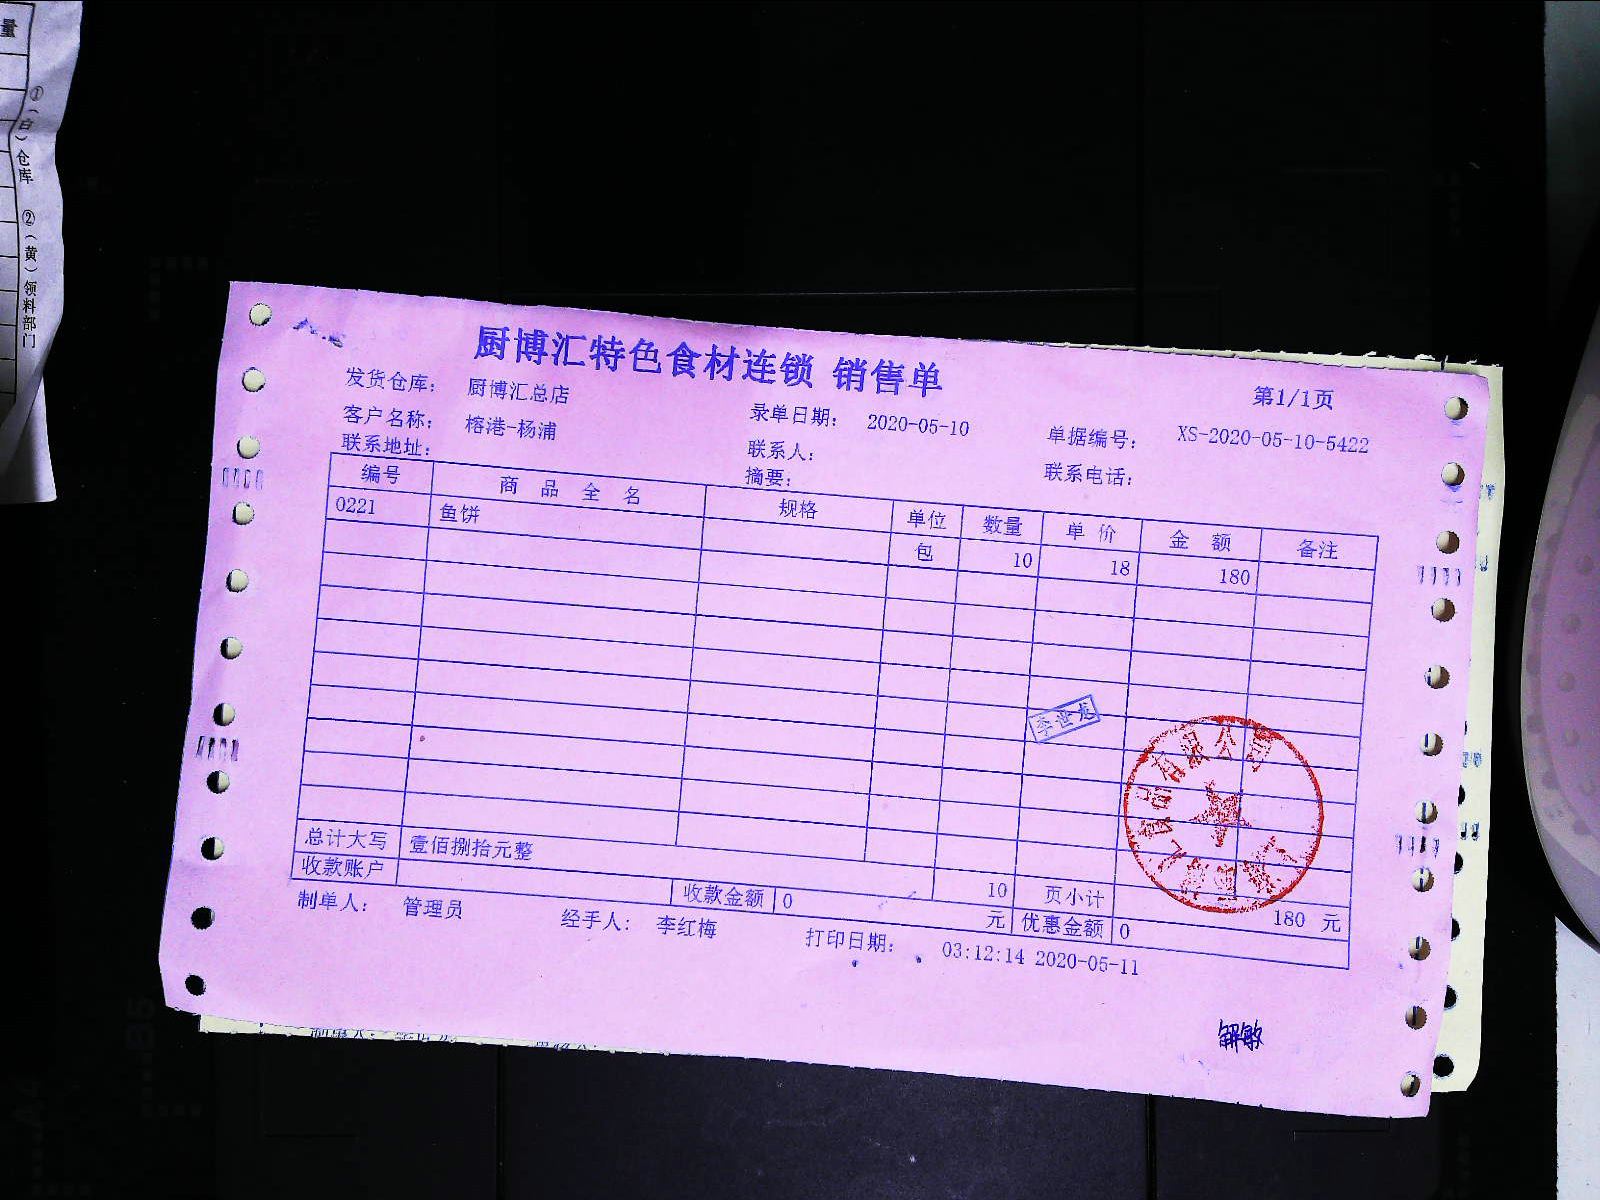 量
①(白)仓库 ②(黄)领料部门
厨博汇特色食材连锁 销售单
第1/1页
发货仓库: 厨博汇总店 录单日期: 2020-05-10 单据编号: XS-2020-05-10-5422
客户名称: 榕港-杨浦 联系人: 联系电话:
联系地址: 摘要:
编号 商品全名 规格 单位 数量 单价 金额 备注
0221 鱼饼 包 10 18 180
李世龙
有限公司
总计大写 壹佰捌拾元整 10 页小计 180 元
收款账户 收款金额 0 元 优惠金额 0
制单人: 管理员 经手人: 李红梅 打印日期: 03:12:14 2020-05-11
解敏